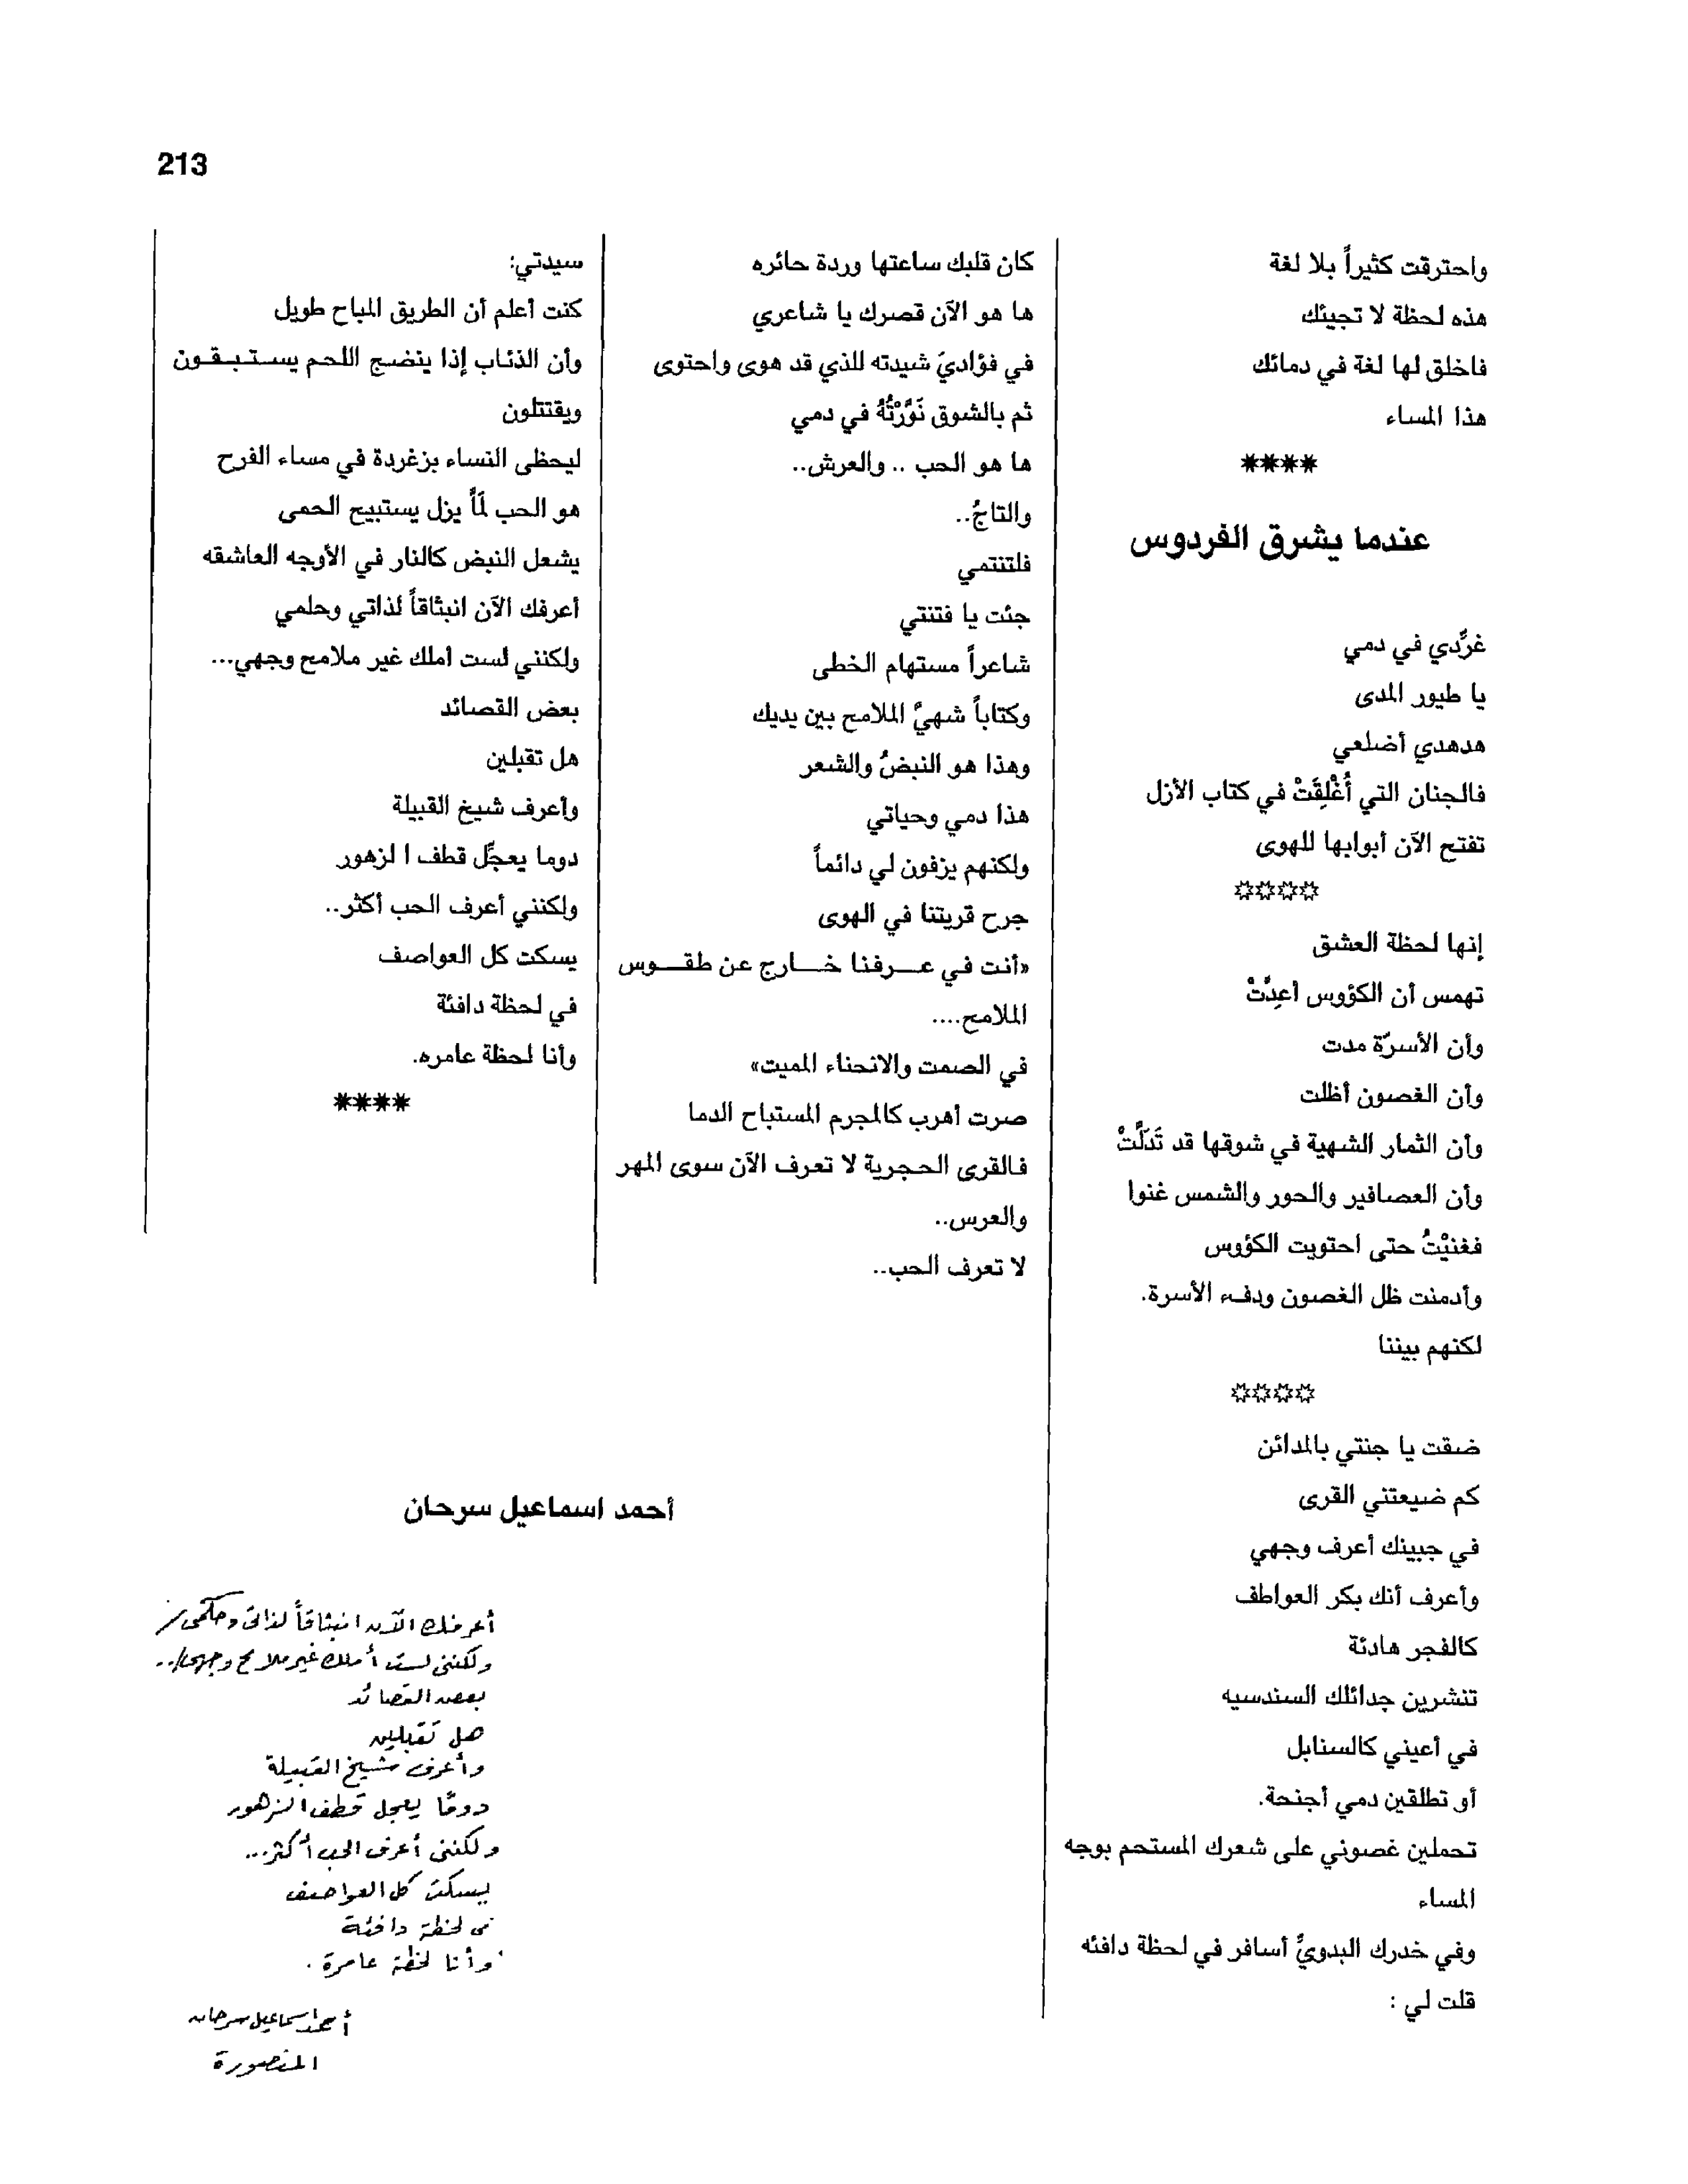 213
واحترقت كثيراً بلا لغة
هذه لحظة لا تجيئك
فاخلق لها لغة في دمائك
هذا المساء
****
عندما يشرق الفردوس
غرِّدي في دمي
يا طيور المدى
هدهدي أضلعي
فالجنان التي أُغْلِقَتْ في كتاب الأزل
تفتح الآن أبوابها للهوى
****
إنها لحظة العشق
تهمس أن الكؤوس أعِدَّتْ
وأن الأسرّة مدت
وأن الغصون أظلت
وأن الثمار الشهية في شوقها قد تَدَلَّتْ
وأن العصافير والحور والشمس غنوا
فغنيْتُ حتى احتويت الكؤوس
وأدمنت ظل الغصون ودفء الأسرة.
لكنهم بيننا
****
ضقت يا جنتي بالمدائن
كم ضيعتني القرى
في جبينك أعرف وجهي
وأعرف أنك بكر العواطف
كالفجر هادئة
تنشرين جدائلك السندسيه
في أعيني كالسنابل
أو تطلقين دمي أجنحة.
تحملين غصوني على شعرك المستحم بوجه
المساء
وفي خدرك البدويِّ أسافر في لحظة دافئه
قلت لي :
كان قلبك ساعتها وردة حائره
ها هو الآن قصرك يا شاعري
في فؤاديَ شيدته للذي قد هوى واحتوى
ثم بالشوق نَوَّرْتُهُ في دمي
ها هو الحب .. والعرش..
والتاجُ..
فلتنتمي
جئت يا فتنتي
شاعراً مستهام الخطى
وكتاباً شهيَّ الملامح بين يديك
وهذا هو النبضُ والشعر
هذا دمي وحياتي
ولكنهم يزفون لي دائماً
جرح قريتنا في الهوى
«أنت في عـــرفنا خـــارج عن طقـــوس
الملامح....
في الصمت والانحناء المميت»
صرت أهرب كالمجرم المستباح الدما
فالقرى الحجرية لا تعرف الآن سوى المهر
والعرس..
لا تعرف الحب..
سيدتي:
كنت أعلم أن الطريق المباح طويل
وأن الذئاب إذا ينضج اللحم يستبقون
ويقتتلون
ليحظى النساء بزغردة في مساء الفرح
هو الحب لَمَّا يزل يستبيح الحمى
يشعل النبض كالنار في الأوجه العاشقه
أعرفك الآن انبثاقاً لذاتي وحلمي
ولكنني لست أملك غير ملامح وجهي...
بعض القصائد
هل تقبلين
وأعرف شيخ القبيلة
دوما يعجِّل قطف ا لزهور
ولكنني أعرف الحب أكثر..
يسكت كل العواصف
في لحظة دافئة
وأنا لحظة عامره.
****
أحمد اسماعيل سرحان
أعرفك الآن انبثاقاً لذاتي وحلمي/
ولكنني لست أملك غير ملامح وجهي/..
بعض القصائد
هل تقبلين
وأعرف شيخ القبيلة
دومًا يعجل قطف الزهور
ولكنني أعرف الحب أكثر...
يسكت كل العواصف
في لحظة دافئة
وأنا لحظة عامرة .
أحمد إسماعيل سرحان
المنصورة